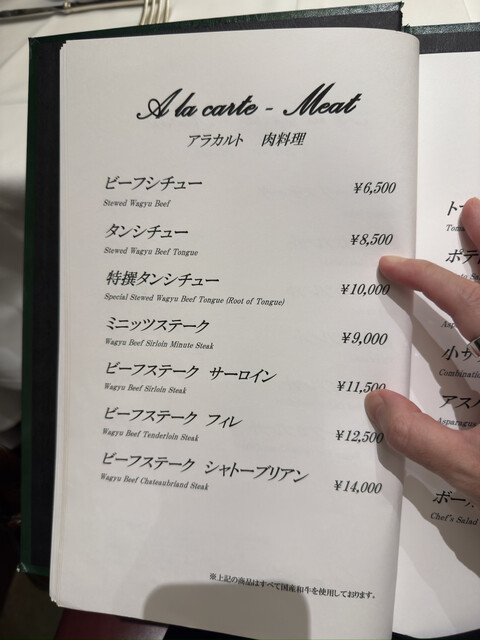 A la carte - Meat
アラカルト 肉料理
ビーフシチュー ¥6,500
Stewed Wagyu Beef
タンシチュー ¥8,500
Stewed Wagyu Beef Tongue
特撰タンシチュー ¥10,000
Special Stewed Wagyu Beef Tongue (Root of Tongue)
ミニッツステーク ¥9,000
Wagyu Beef Sirloin Minute Steak
ビーフステーク サーロイン ¥11,500
Wagyu Beef Sirloin Steak
ビーフステーク フィレ ¥12,500
Wagyu Beef Tenderloin Steak
ビーフステーク シャトーブリアン ¥14,000
Wagyu Beef Chateaubriand Steak
※上記の商品はすべて国産和牛を使用しております。
ポテ
小サ
Combinatio
アスパ
Asparagus
Chef's Salad